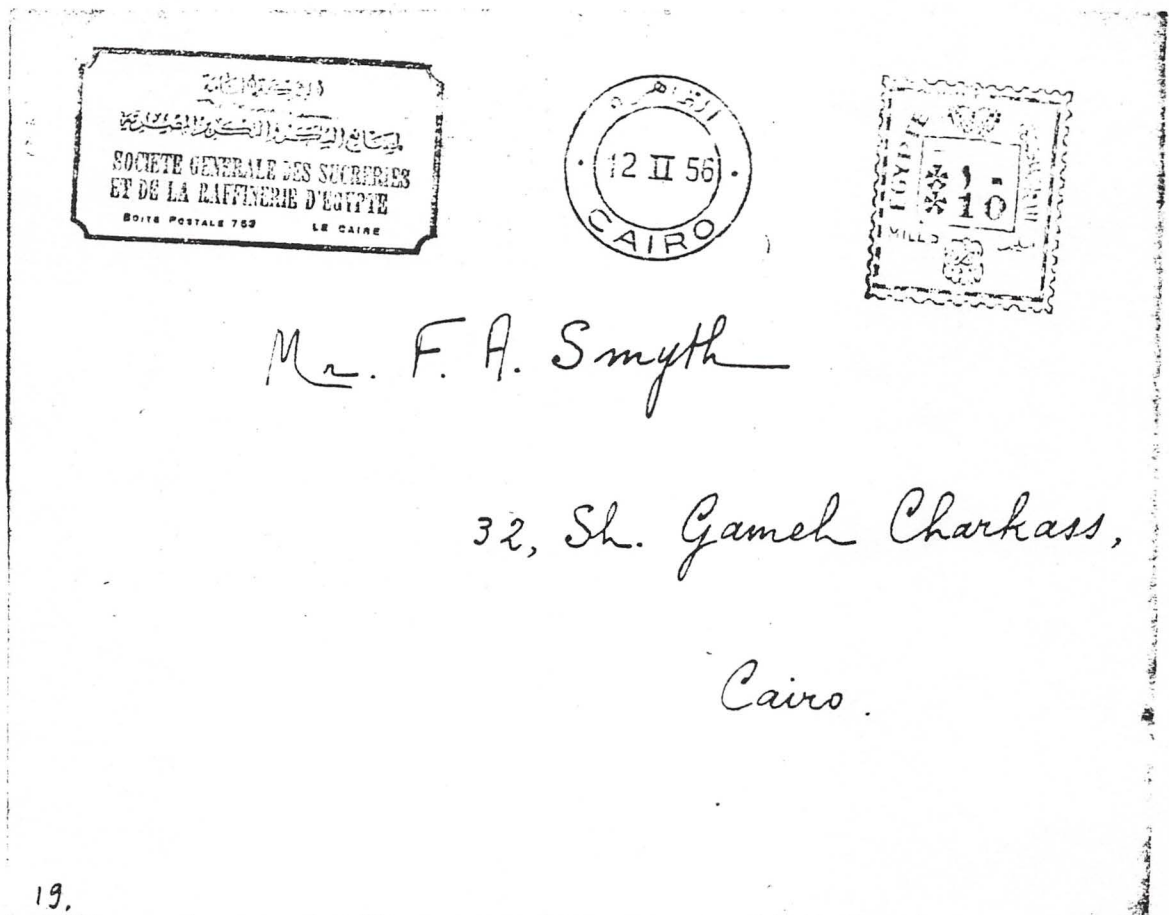 SOCIETE GENERALE DES SUCRERIES
ET DE LA RAFFINERIE D'EGYPTE
BOITE POSTALE 753 LE CAIRE
القاهرة
12 II 56
CAIRO
EGYPTE
١٠
10
MILLS
Mr. F. A. Smyth
32, Sh. Gameh Charkass,
Cairo.
19.